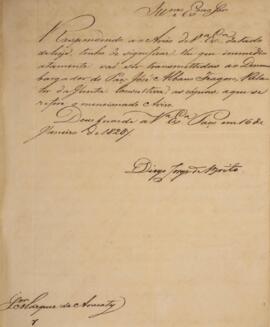 Illmo. e Exmo. Snr.
Respondendo ao Aviso de V. Exa. datado
de hoje, tenho de significar-lhe que immedi
atamente vai ser transmettidas ao Desem
bargador do Paço José Albano Fragoso, Rela
tor da Junta Consultiva as cópias, a que se
refere o mencionado Aviso.
Deos guarde a V. Exa. Paço em 16 de
Janeiro de 1828
Diogo Jorge de Brito
Snr. Marquez de Aracaty